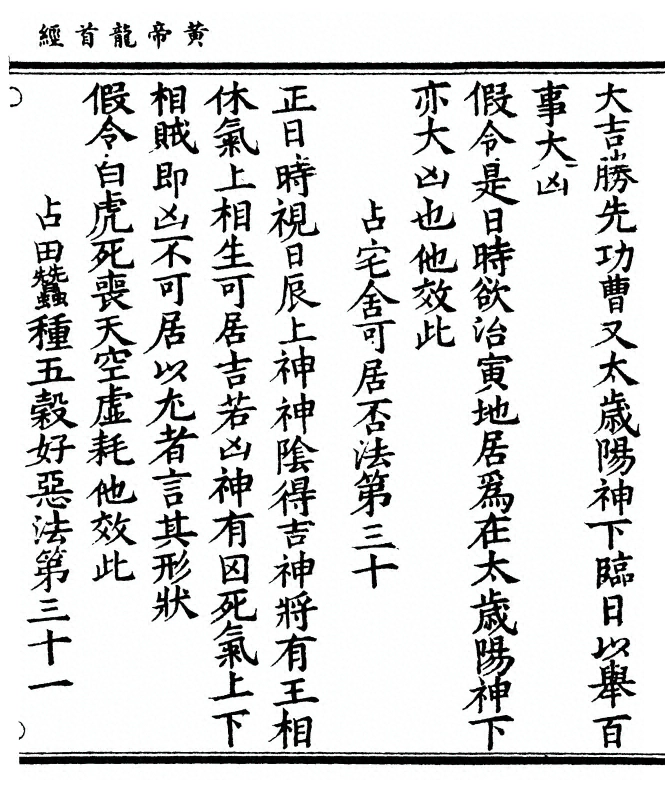 黃帝龍首經
大吉小勝先功曹又太歲陽神下臨日以舉百
事大凶
假令是日時欲治寅地居爲在太歲陽神下
亦大凶也他效此
占宅舍可居否法第三十
正日時視日辰上神神陰得吉神將有王相
休氣上相生可居吉若凶神有囚死氣上下
相賊即凶不可居以尤者言其形狀
假令白虎死喪天空虛耗他效此
占田蠶種五穀好惡法第三十一